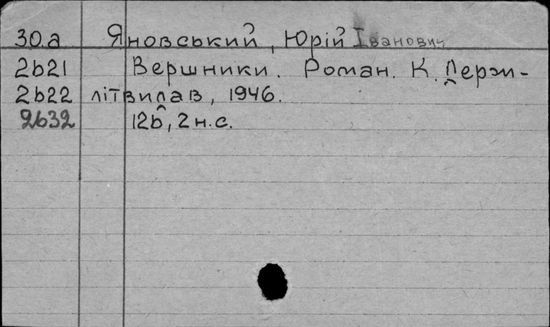 30.а Яновський, Юрій Іванович
2b21 Вершники. Роман. К. Держ-
2b22 літвидав, 1946.
2b32 126, 2 н.с.